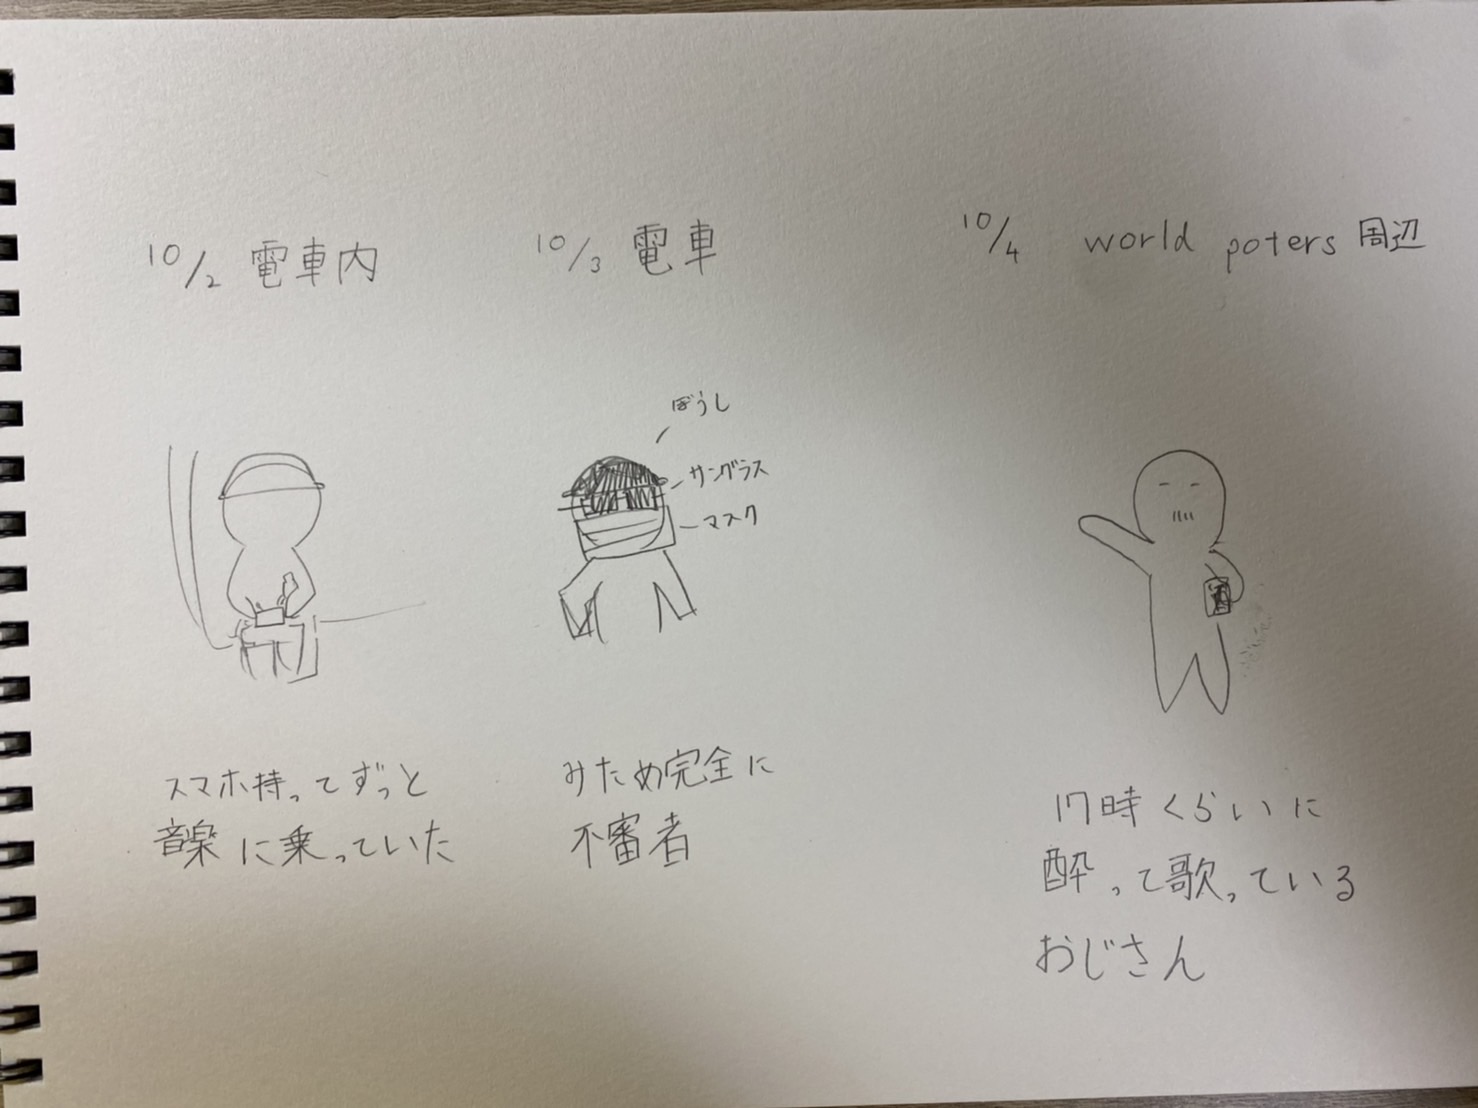 10/2 電車内
スマホ持ってずっと
音楽に乗っていた
10/3 電車
ぼうし
サングラス
マスク
みため完全に
不審者
10/4 world poters 周辺
酒
17時くらいに
酔って歌っている
おじさん